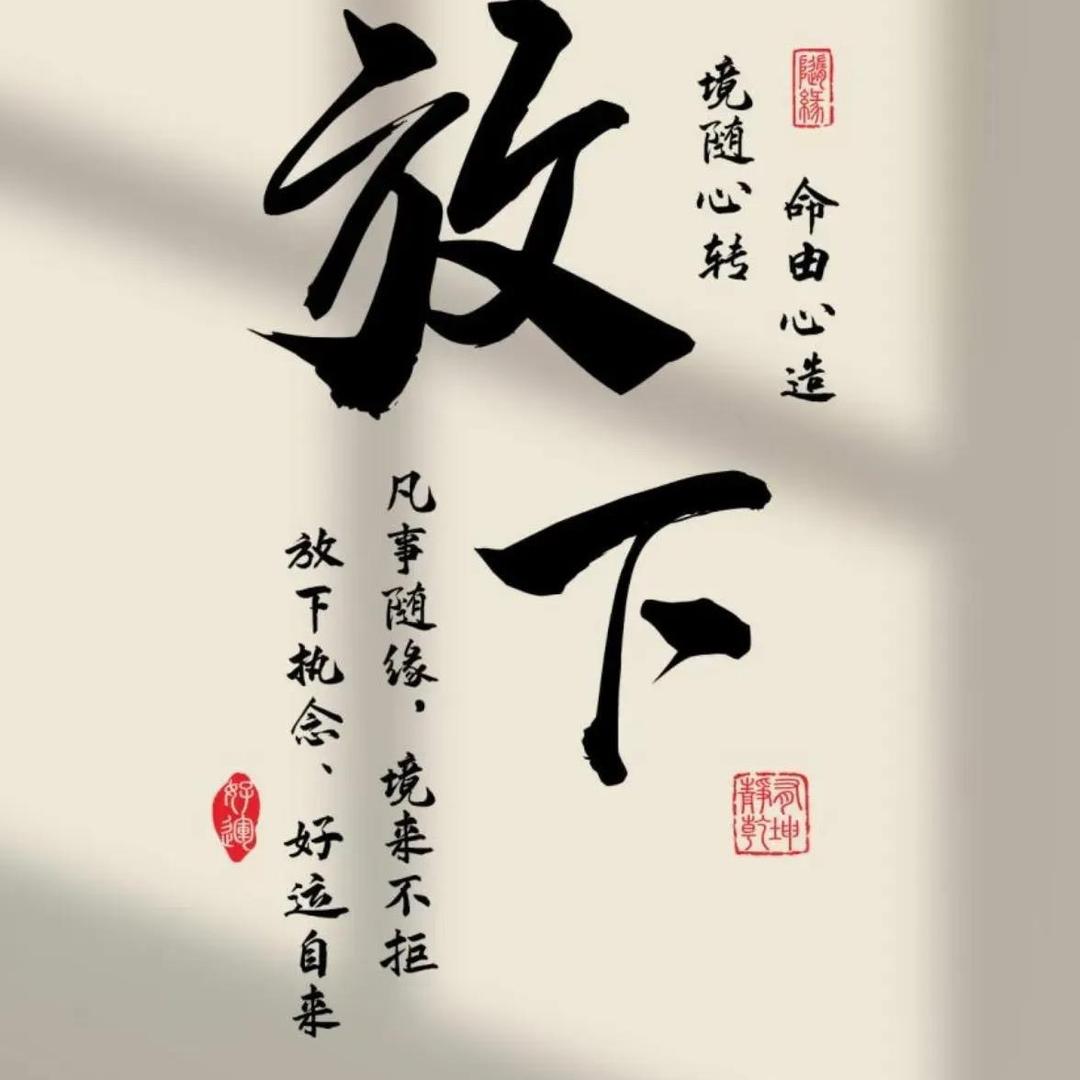 隨緣
命由心造
境随心转
放下
靜有乾坤
凡事随缘，境来不拒
放下执念、好运自来
好運